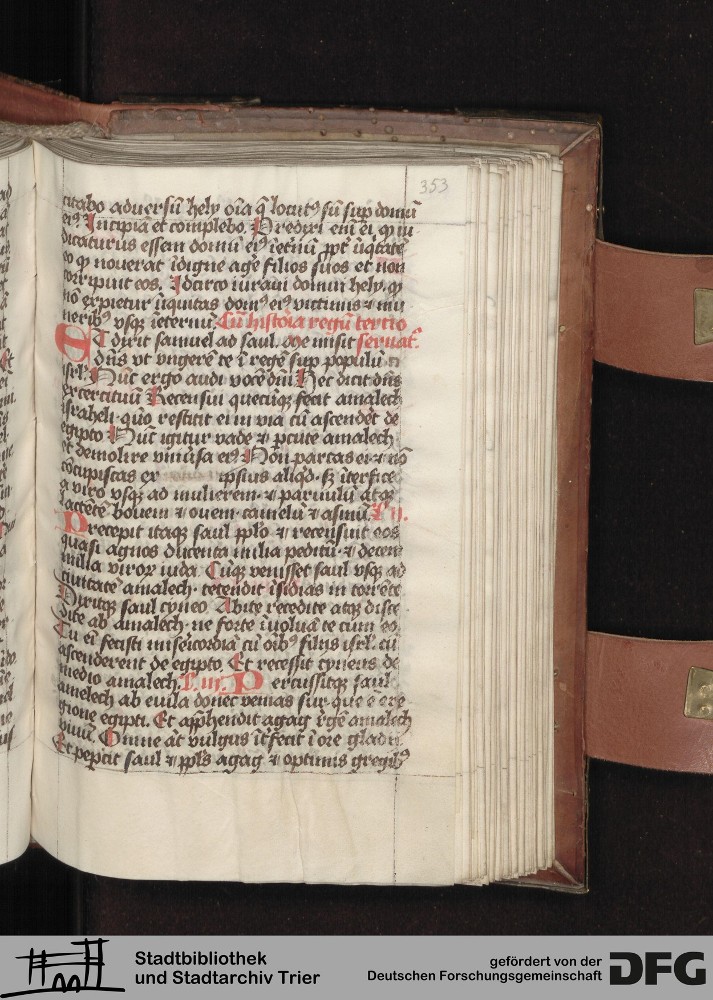 353
citabo adversū hely oīa q̄ locutꝰ sū sup domū
eiꝰ. Incipiā et complebo. Predixi enī ei ꝙ iu-
dicaturus essem domū eiꝰ īetnū ꝓpt̄ iīq̄tatē
eo ꝙ noverat īdigne age filios suos et non
corripuit eos. Idcirco iuravi domui hely. ꝙ
nō expietur iniquitas domꝰ eiꝰ victimis ⁊ mu
neribꝰ vsqꝫ īeternū. Cū histōia regū tertio
ET dixit samuel ad saul. me misit servat᷑.
dn̄s vt vngerē te ī regē sup populū
isrl̄. Nūc ergo audi vocē dn̄i Hec dicit dn̄s
exercituū Recensui quecūqꝫ fecit amalech
israheli. quō restitit ei in via cū ascendēt de
egipto Nūc igitur vade ⁊ ꝑcute amalech
et demolire vniūsa eiꝰ Non parcas ei ⁊ nō
cōcupiscas ex ipsius aliqd. sꝫ īterfice
a viro vsqꝫ ad mulierem. ⁊ parvulū atqꝫ
lactētē bovem ⁊ ovem. camelū ⁊ asinū. L. ij.
Precepit itaqꝫ saul ppl̄o ⁊ recensuit eos
quasi agnos ducenta milia peditū. ⁊ decem
milia viroꝝ iuda. Cūqꝫ venisset saul vsqꝫ ad
civitatē amalech. tetendit īsidias in torrēte
Dixitqꝫ saul cyneo. Abite recedite atqꝫ disce
dite ab amalech. ne forte īvolvā te cum eo.
Tu eī fecisti misēicordiā cū oīb filiis isrl̄. cū
ascenderent de egipto. Et recessit cyneus de
medio amalech. L. iij. Percussitqꝫ saul
amelech ab evila donec venias sur. que ē e re
gione egipti. Et app̄hendit agag regē amalech
vivū. Omne āt vulgus īt̄fecit ī ore gladii.
Et pepcit saul ⁊ ppl̄s agag ⁊ optimis gregibꝰ
Stadtbibliothek
und Stadtarchiv Trier
gefördert von der
Deutschen Forschungsgemeinschaft
DFG